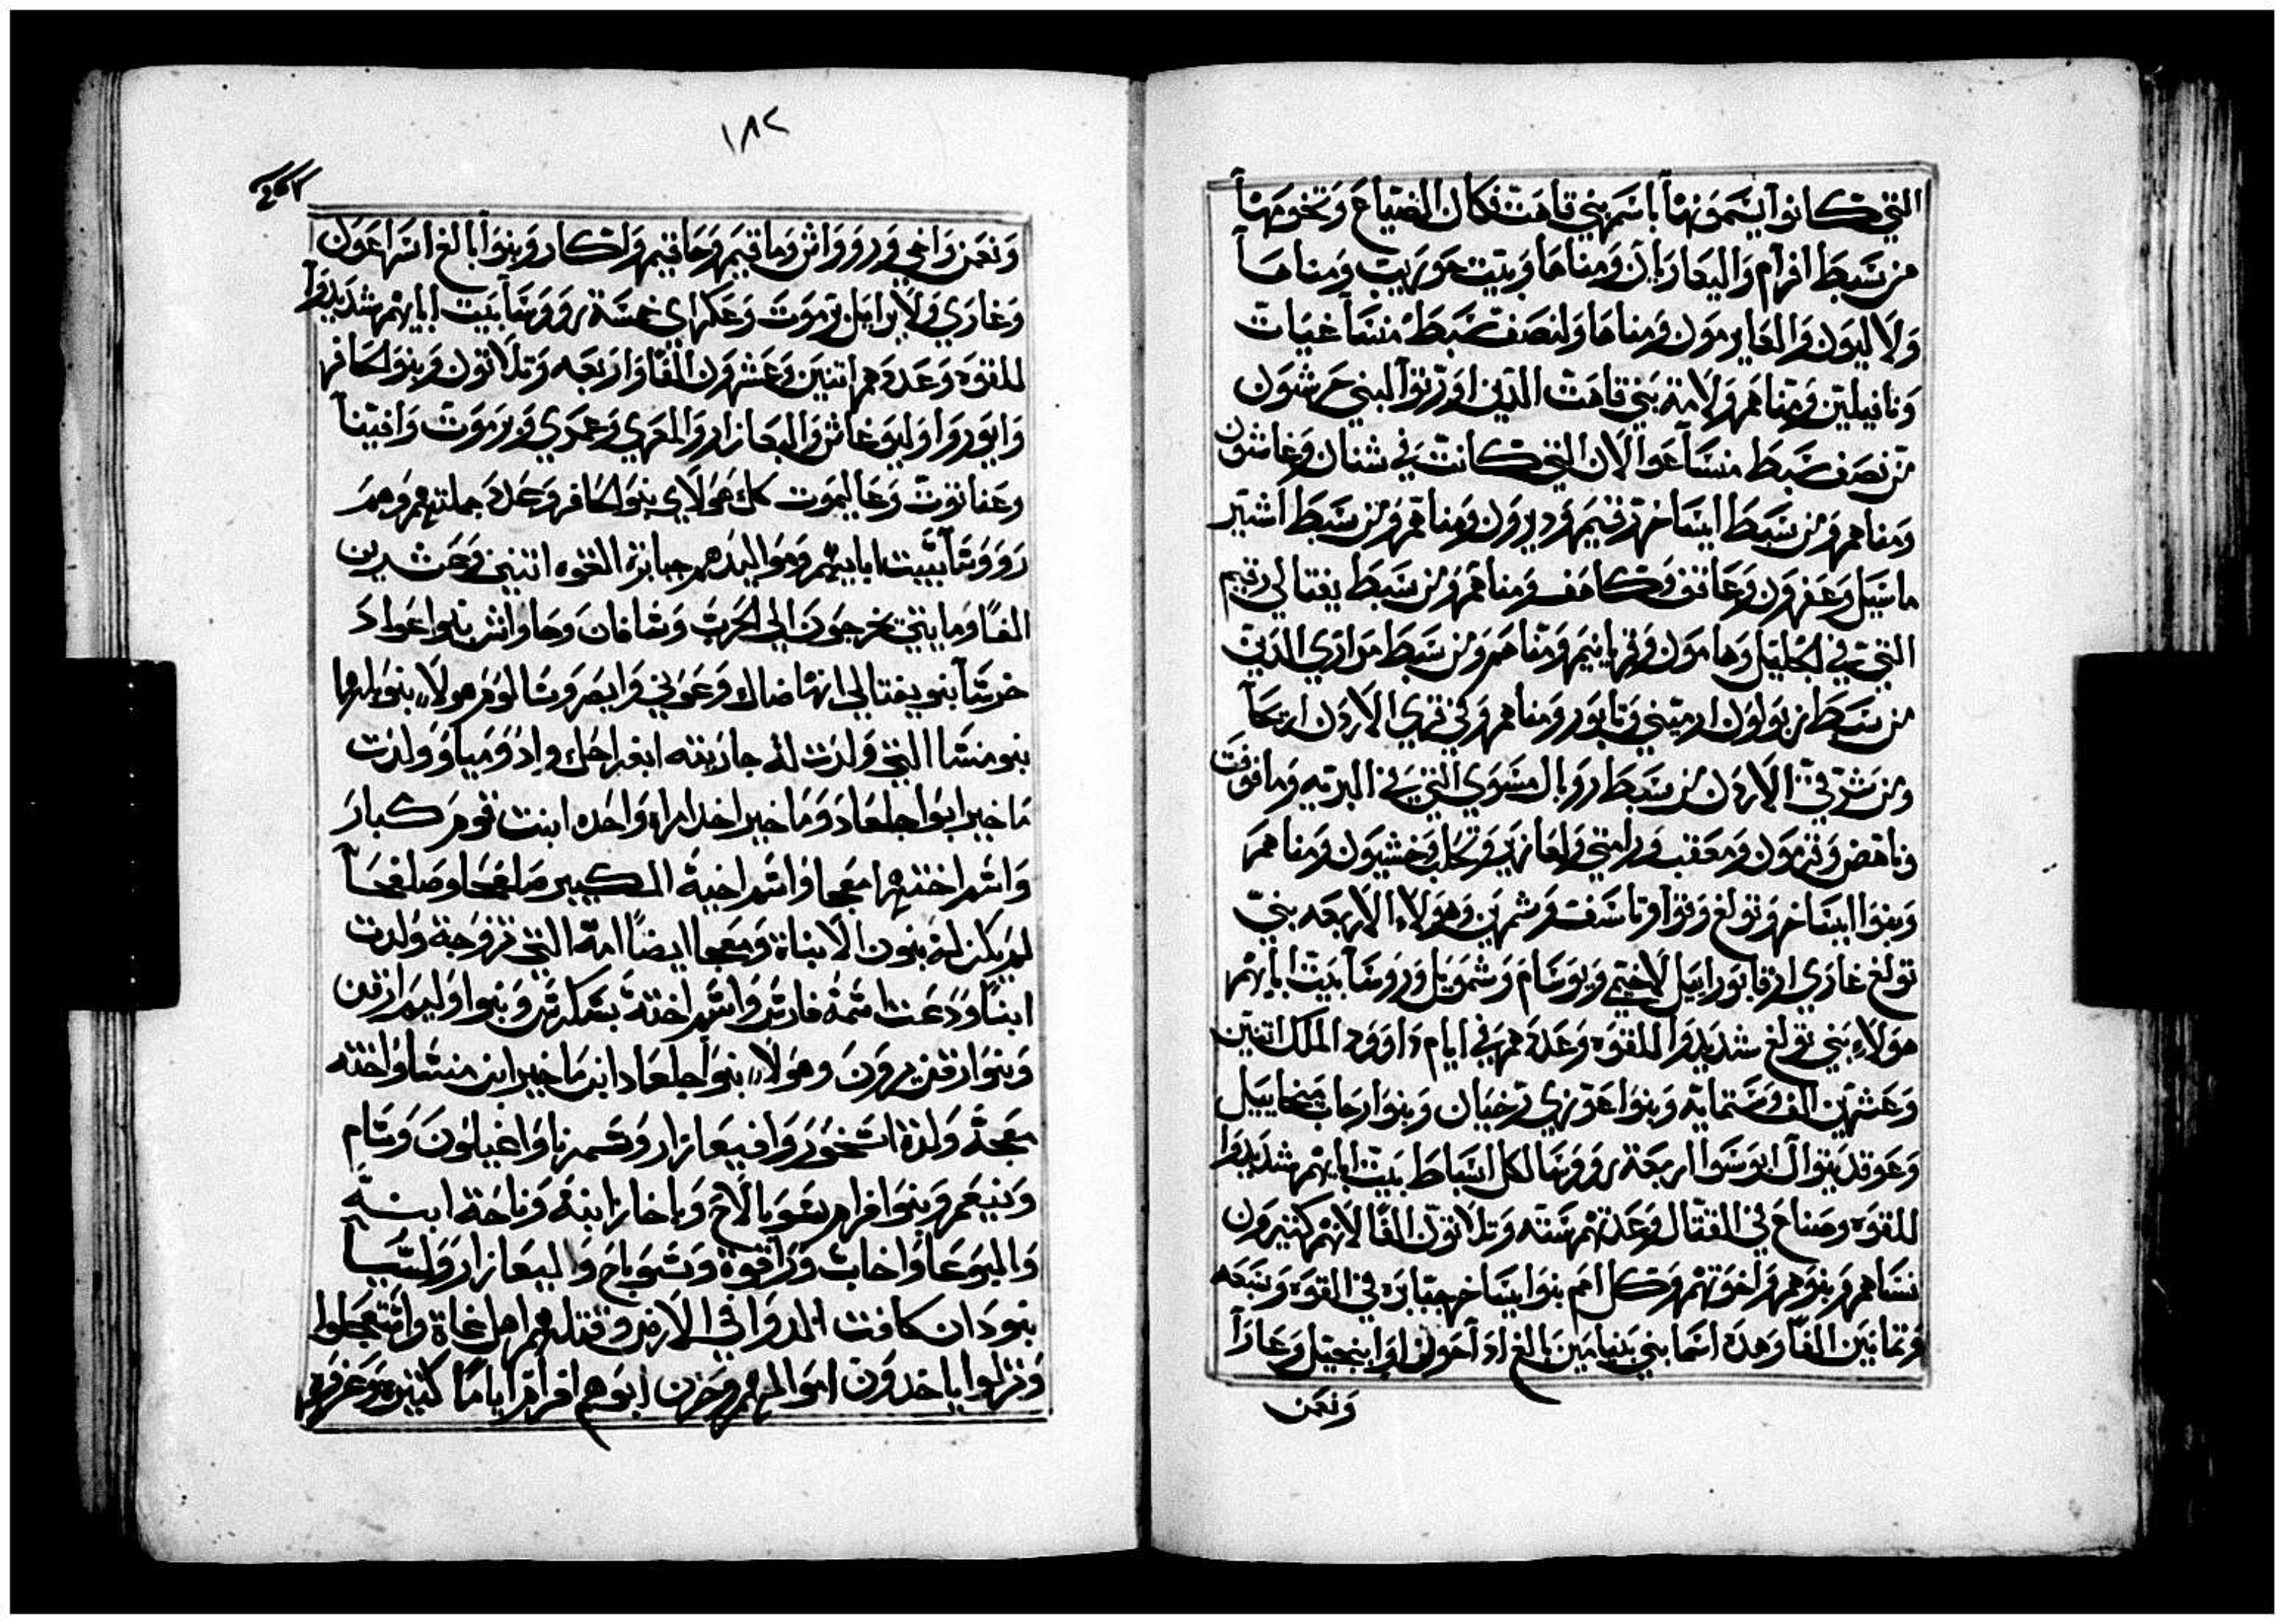 التي كانوا يسمونها باسم بني قاهت فكان الضياع وتخومها
من سبط افرام واليعازبان ومناها وبيت حوريت ومناها
ولاليون والعايرمون ومناها ولنصف سبط منسا غيات
ونانيلين ومناهم ولامة بني قاهت الذين اورثوا لبني حرشون
من نصف سبط منسا عوالان التي كانت في شنان وغاشون
ومناهم ومن سبط ايساخر رقيم وديرون ومناهم ومن سبط اشير
ماسيل وعفرون وعاتق وكاهف ومناهم ومن سبط يفتالي رقيم
التي في الجليل وهامون وقرباتيم ومناهم ومن سبط مراري الذين
من سبط زبولون ارميني وتابور ومناهم وكي تري الاردن اريحا
ومن شرقي الاردن من سبط روبال مسوي التي في البريه وما فوقت
وناهض وترمون ومعقب ورامتي ولعازير وتحلب وخشبون ومناهم
وبنوا ايساخر وتولغ وفوا وتاسف وشمرين وهولاء الاربعه بني
تولغ غازي ارفا بورابيل لاختي وبوسام وشمويل وروسا بيت ابايهم
هولاء بني تولغ شديدوا للقوه وعددهم في ايام داوود الملك اتنين
وعشرين الف وستمايه وبنوا عوزي رخيان وبنوا رحاب ميخاييل
وعوقد بنوال ابوسوا اربعة رووسا لكل اسباط بيت ابايهم شديدوا
للقوه وصناع في القتال وعدتهم سته وتلاتون الفا لانهم كتيرون
نساهم وبنوهم ولخوتهم وكل امم بنوا يساخر جبابره في القوه وسبعه
وتمانين الفا وهذه اسما بني بنيامين بالغ ادا حولن اوا بنجيل وعازا
ونعمن
١٨٢
ونعمن واخي ورووواش وماقيم وحاقيم ولكار وبنوا بالغ اسراعون
وغازي ولابراييل ترموت وعكراي خمسة رووسا بيت ابايهم شديدوا
للقوه وعددهم اتنين وعشرون الفا واربعه وتلاتون وبنوا كافر
وابوروا وليوغاش واليعازار والمعري وعمري ويرموت وافيتا
وعناتوت وعاليموت كل هولاي بنوا كافر وعدد جملتهم وهم
رووسا ببيت ابايهم ومواليدهم جبابرة القوه اتنين وعشرين
الفا ومايتي يخرجون الي الحرب وشافان وحاوانش بنوا عواد
خرشا بنو يفتالي انها ضاك وعوني وايصر وشالوم هولاء بنو بلها
بنو منسا التي ولدت له جاريته ابغراحك وادومياو وولدت
ماخير ابوا جلعاد وماخير اخد امراه واحده ابنت قوم كبار
واسم اختهم امعجا واسم اخية الكبير صلفحا وصلفحا
لم يكن له بنون الا بناة ومعجا ايضا امة التي تزوجة ولدت
ابنا ودعت اسمه فارش واسم اخته بشكرش وبنوا وليم ارقن
وبنوا رقن يرون وهولاء بنوا جلعاد ابن ماخير ابن منشا واخته
معجة ولدة اشخور وافيعازار وشمرنا واغيلون وشام
وبنيعم وبنوا فرام سعوبالاخ وباخاز ابنة وناحة ابنه
واليوعا واخاب وراقوة وشوباح واليعازار وليسا
بنودان كافت الدوا في الارض وقتلهم اهل غاة واستعجلوا
ونزلوا ياخدون اموالهم وحزن ابوهم افرام اياما كتيره وعرفهم